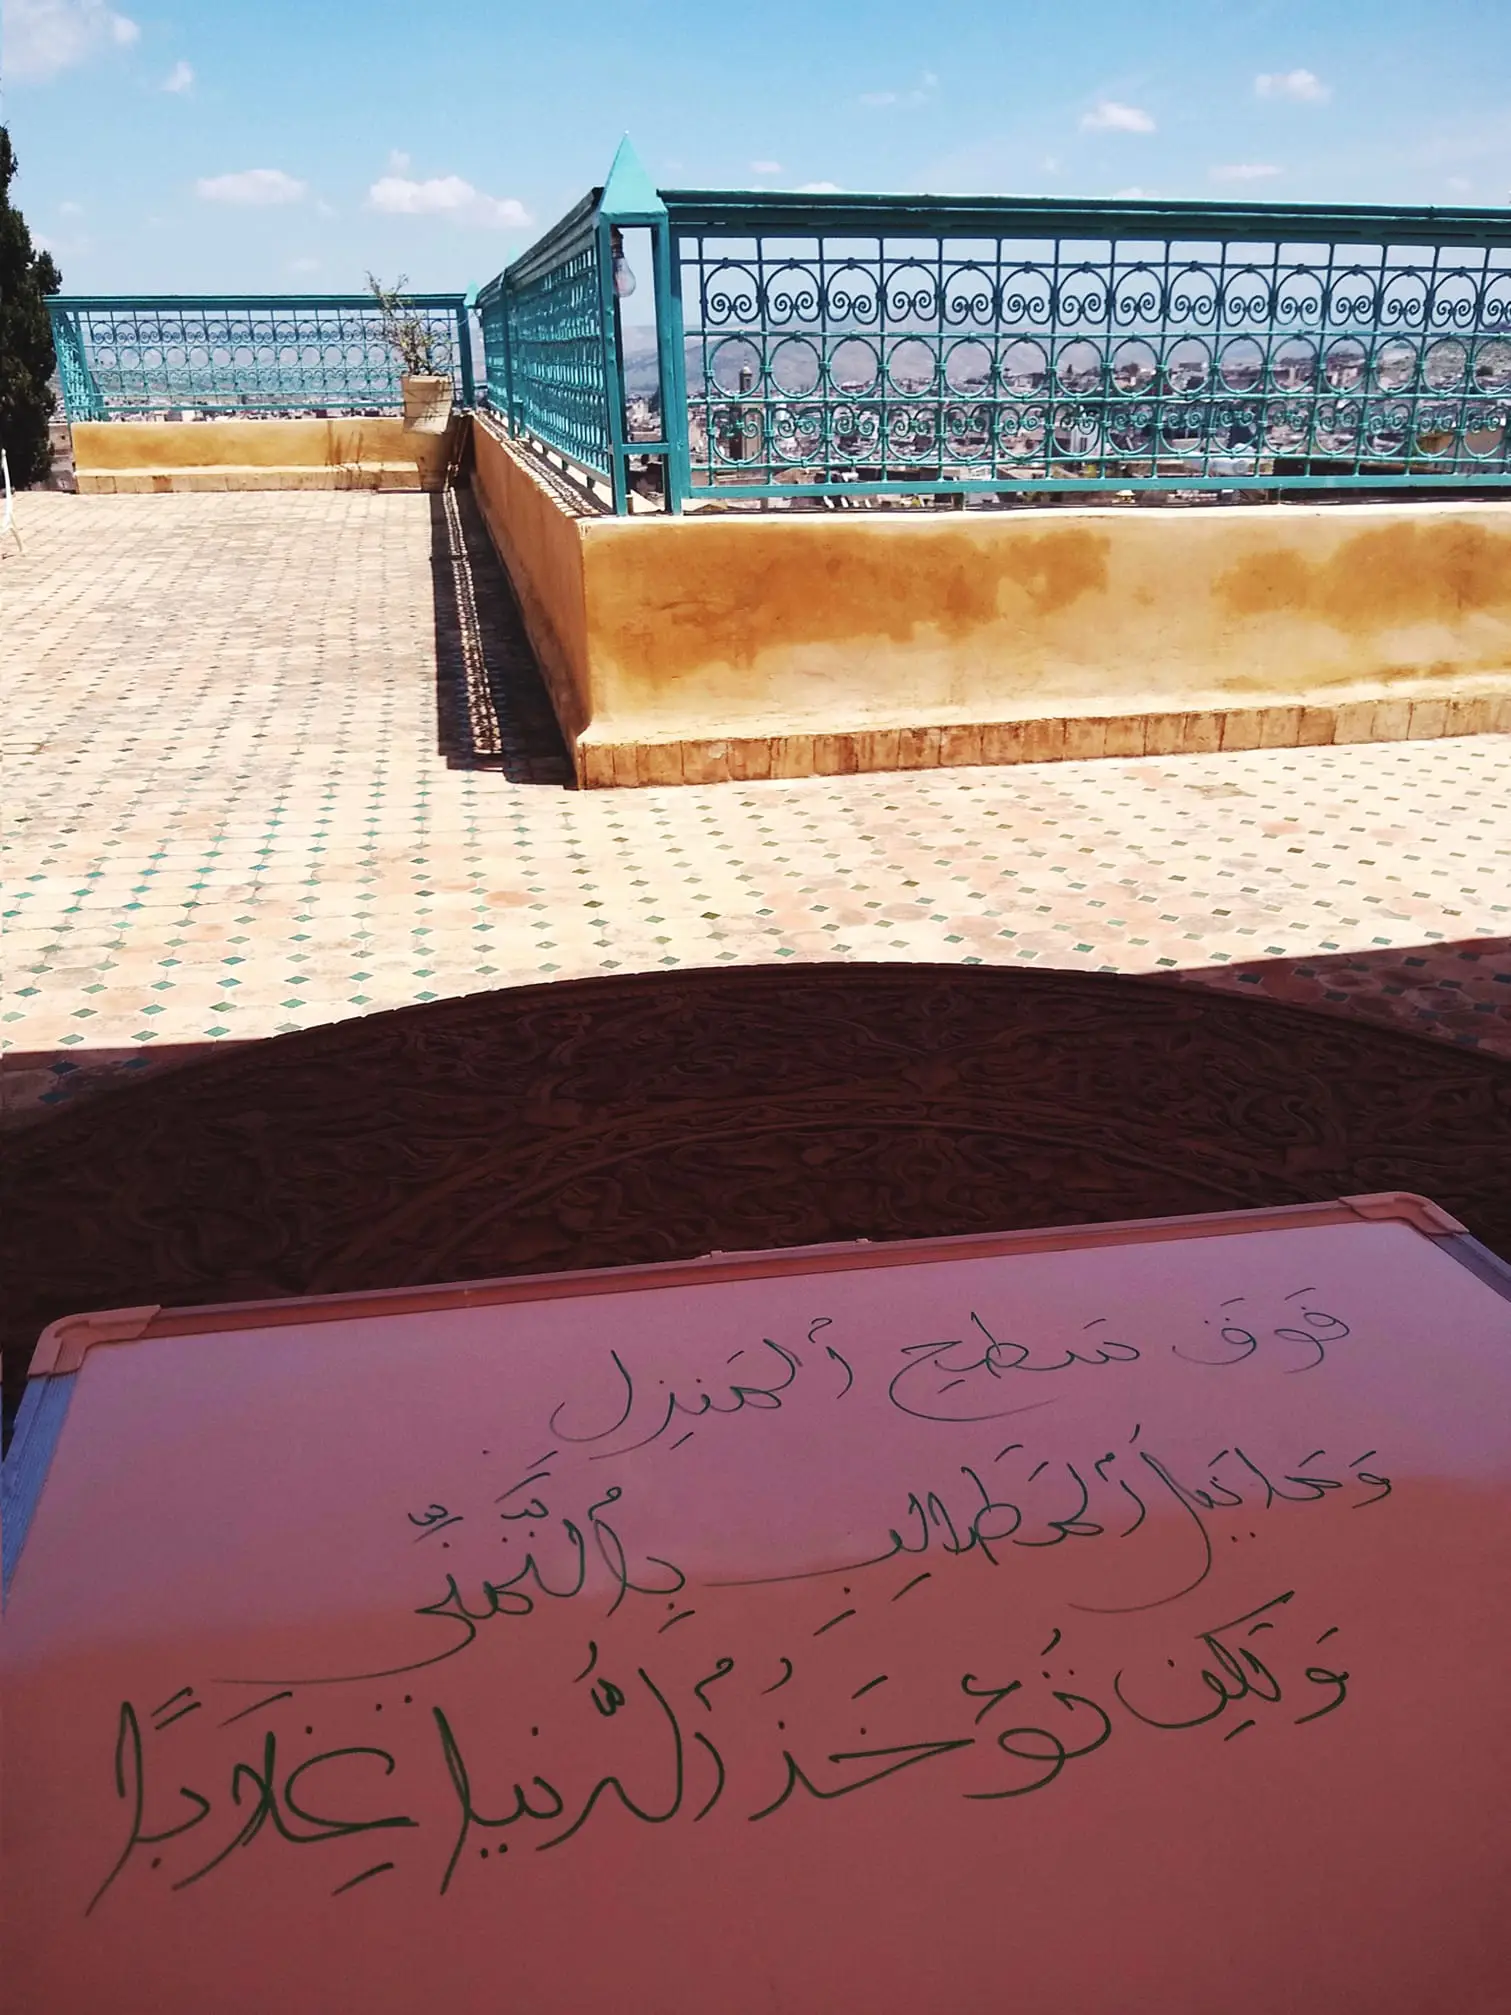 فَوقَ سَطحِ ٱلمَنزِل
وَمَا نَيلُ ٱلمَطَالِبِ بِٱلتَّمَنِّي
وَلَكِن تُؤخَذُ ٱلدُّنيَا غِلَابًا